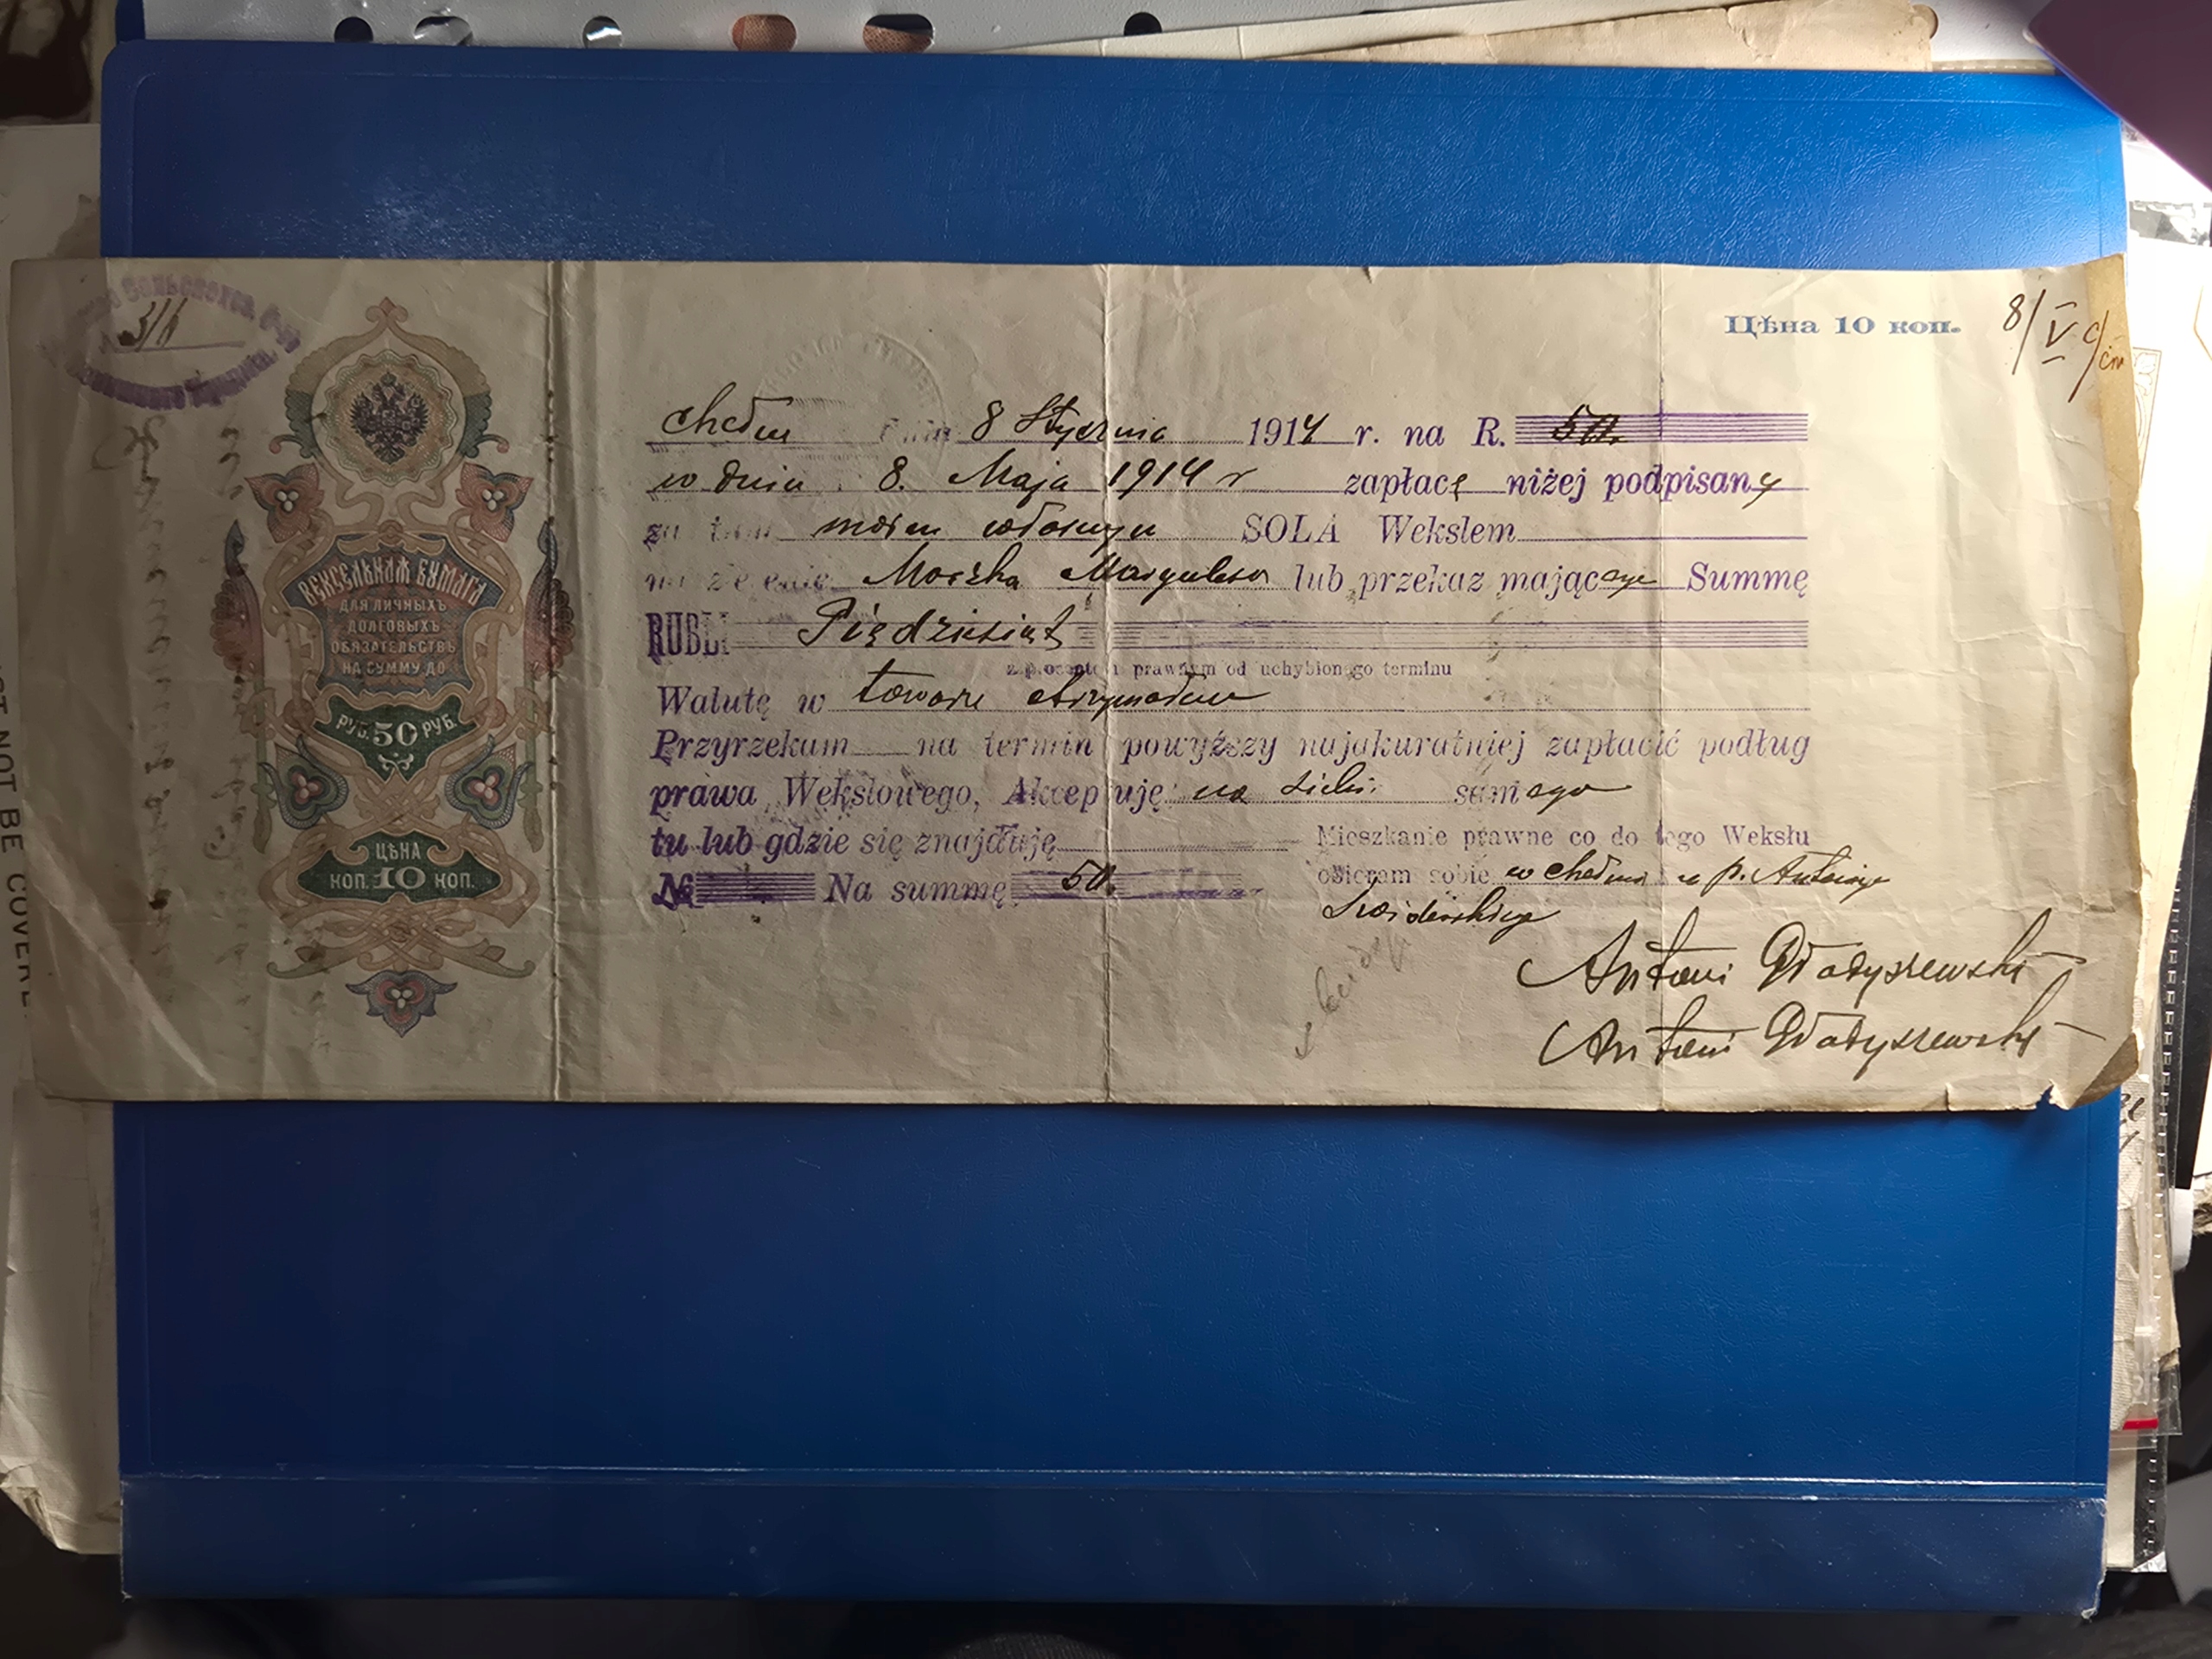 3/6
Цѣна 10 коп.
8/V
Chełm dnia 8 Stycznia 1914 r. na R. 50.
w dniu 8. Maja 1914 r zapłacę niżej podpisany
za tem moim własnym SOLA Wekslem
na zlecenie Moszka Margulesa lub przekaz mającego Summę
RUBLI Pięćdziesiąt
z procentem prawnym od uchybionego terminu
Walutę w towarze otrzymałem
Przyrzekam na termin powyższy najakuratniej zapłacić podług
prawa Wekslowego, Akceptuję na siebie samego
tu lub gdzie się znajduję
№ Na summę 50.
Mieszkanie prawne co do tego Wekslu
obieram sobie w Chełmie u p. Antoniego
Świderskiego
Antoni Władyszewski
Antoni Władyszewski
ВЕКСЕЛЬНАЯ БУМАГА
ДЛЯ ЛИЧНЫХЪ
ДОЛГОВЫХЪ
ОБЯЗАТЕЛЬСТВЪ
НА СУММУ ДО
РУБ. 50 РУБ.
ЦѢНА
КОП. 10 КОП.
NOT BE COVERE